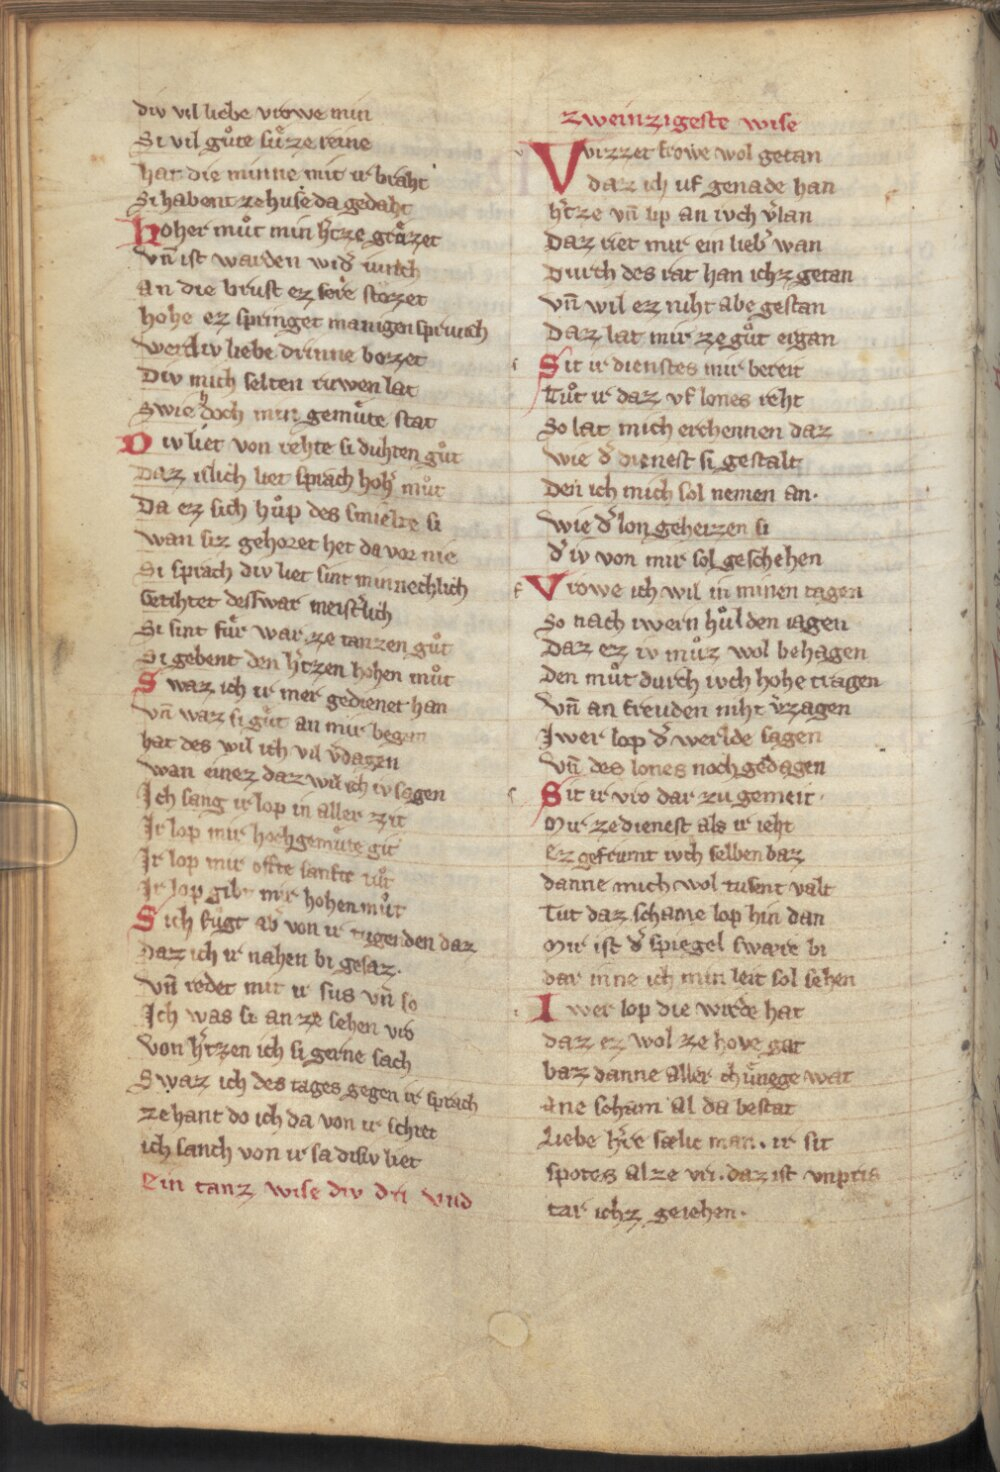 div vil liebe vrowe min
Si vil guͦte suͤze reine
hat die minne mit ir braht
Si habent ze huse da gedaht
Hoher muͦt min h̾tze groͤzet
vn̄ ist warden wid̾ mich
an die brust ez sere stozet
hohe ez springet manigen sprunch
werd iv liebe drinne bozet
Div mich selten ruwen lat
Swie doch min gemuͤte stat
Div liet von rehte si duhten guͦt
Daz islich liet sprach hoh̾ muͦt
Da ez sich huͦp des smielte si
wan siz gehoret het da vor nie
Si sprach div liet sint minnechlich
Getihtet deswar meist̾lich
Si sint fuͤr war ze tanzen guͦt
Si gebent den h̾tzen hohen muͦt
Swaz ich ir mer gedienet han
vn̄ waz si guͦt an mir began
hat des wil ich vil v̾dagen
wan einez daz wil ich iv sagen
Ich sang ir lop in aller zit
Ir lop mir hochgemuͤte git
Ir lop mir offte sanfte tuͦt
Ir lop gibt mir hohen muͦt
Sich fuͤgt ab̾ von ir tugenden daz
Daz ich ir nahen bi gesaz.
vn̄ redet mit ir sus vn̄ so
Ich was si an ze sehen vro
von h̾tzen ich si gerne sach
Swaz ich des tages gegen ir sprach
ze hant do ich da von ir schiet
ich sanch von ir sa disiv liet
Ein tanz wise div dri vnd
zweinzigeste wise
Vvizzet frowe wol getan
daz ich uf genade han
h̾tze vn̄ lip an ivch v̾lan
Daz riet mir ein lieb̾ wan
Durch des rat han ichz getan
vn̄ wil ez niht abe gestan
Daz lat mir ze guͦt ergan
Sit ir dienstes mir bereit
Tuͦt ir daz vf lones reht
So lat mich erchennen daz
wie d̾ dienest si gestalt
den ich mich sol nemen an.
wie d̾ lon geheizen si
d̾ iv von mir sol geschehen
Vrowe ich wil in minen tagen
so nach iwern huͦlden iagen
Daz ez iv muͦz wol behagen
den muͦt durch ivch hohe tragen
vn̄ an freuden niht v̾zagen
Iwer lop d̾ werlde sagen
vn̄ des lones noch gedagen
Sit ir vro dar zu gemeit.
Mir ze dienest als ir ieht
Ez gefrumt ivch selben baz
danne mich wol tusent valt
Tut daz schame lop hin dan
Mir ist d̾ spiegel sware bi
dar inne ich min leit sol sehen
Iwer lop die wirde hat
daz ez wol ze hove gat
baz danne aller chuͤnege wat
ane scham al da bestat
Liebe h̾re sælic man. ir sit
spotes al ze vri. daz ist vnpris
tar ichz geiehen.